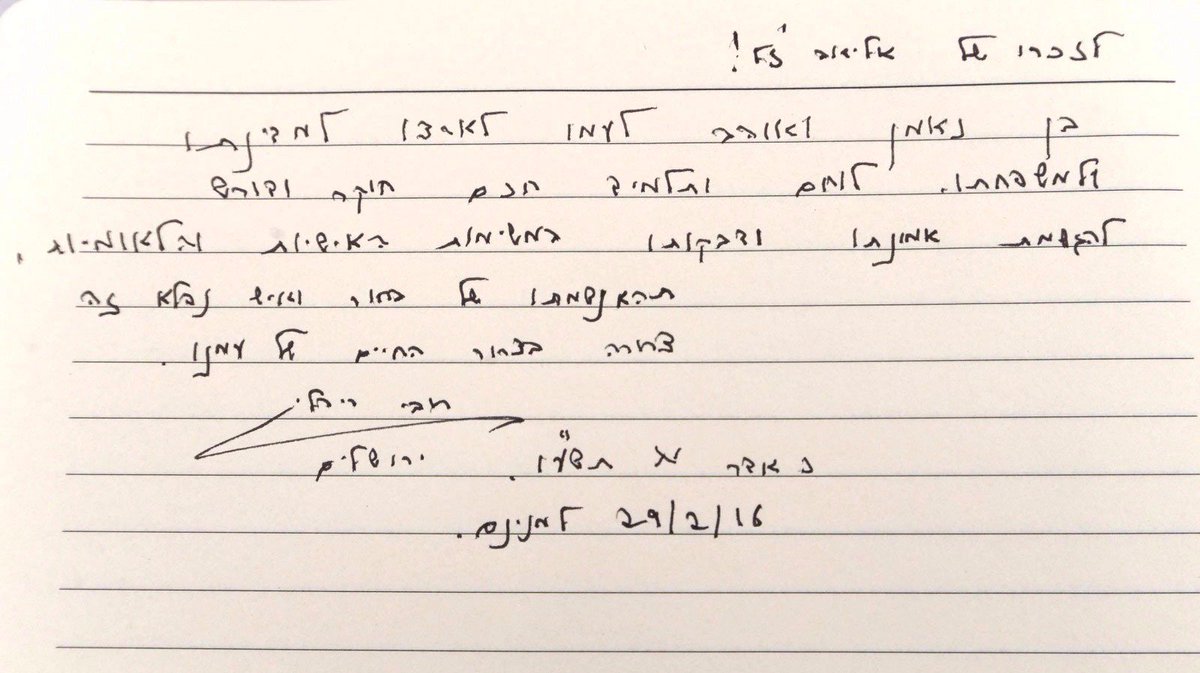 לזכרו של אליאב ז"ל!
בן נאמן ואוהב לעמו לארצו למדינתו
ולמשפחתו. לוחם ותלמיד חכם חוקר ודורש
להגשמת אמונתו ודבקותו במשימות האישיות והלאומיות.
תהא נשמתו של בחור ואיש נפלא זה
צרורה בצרור החיים של עמנו.
רובי ריבלי
כ אדר א תשע"ו. ירושלים
29/2/16 למנינם.